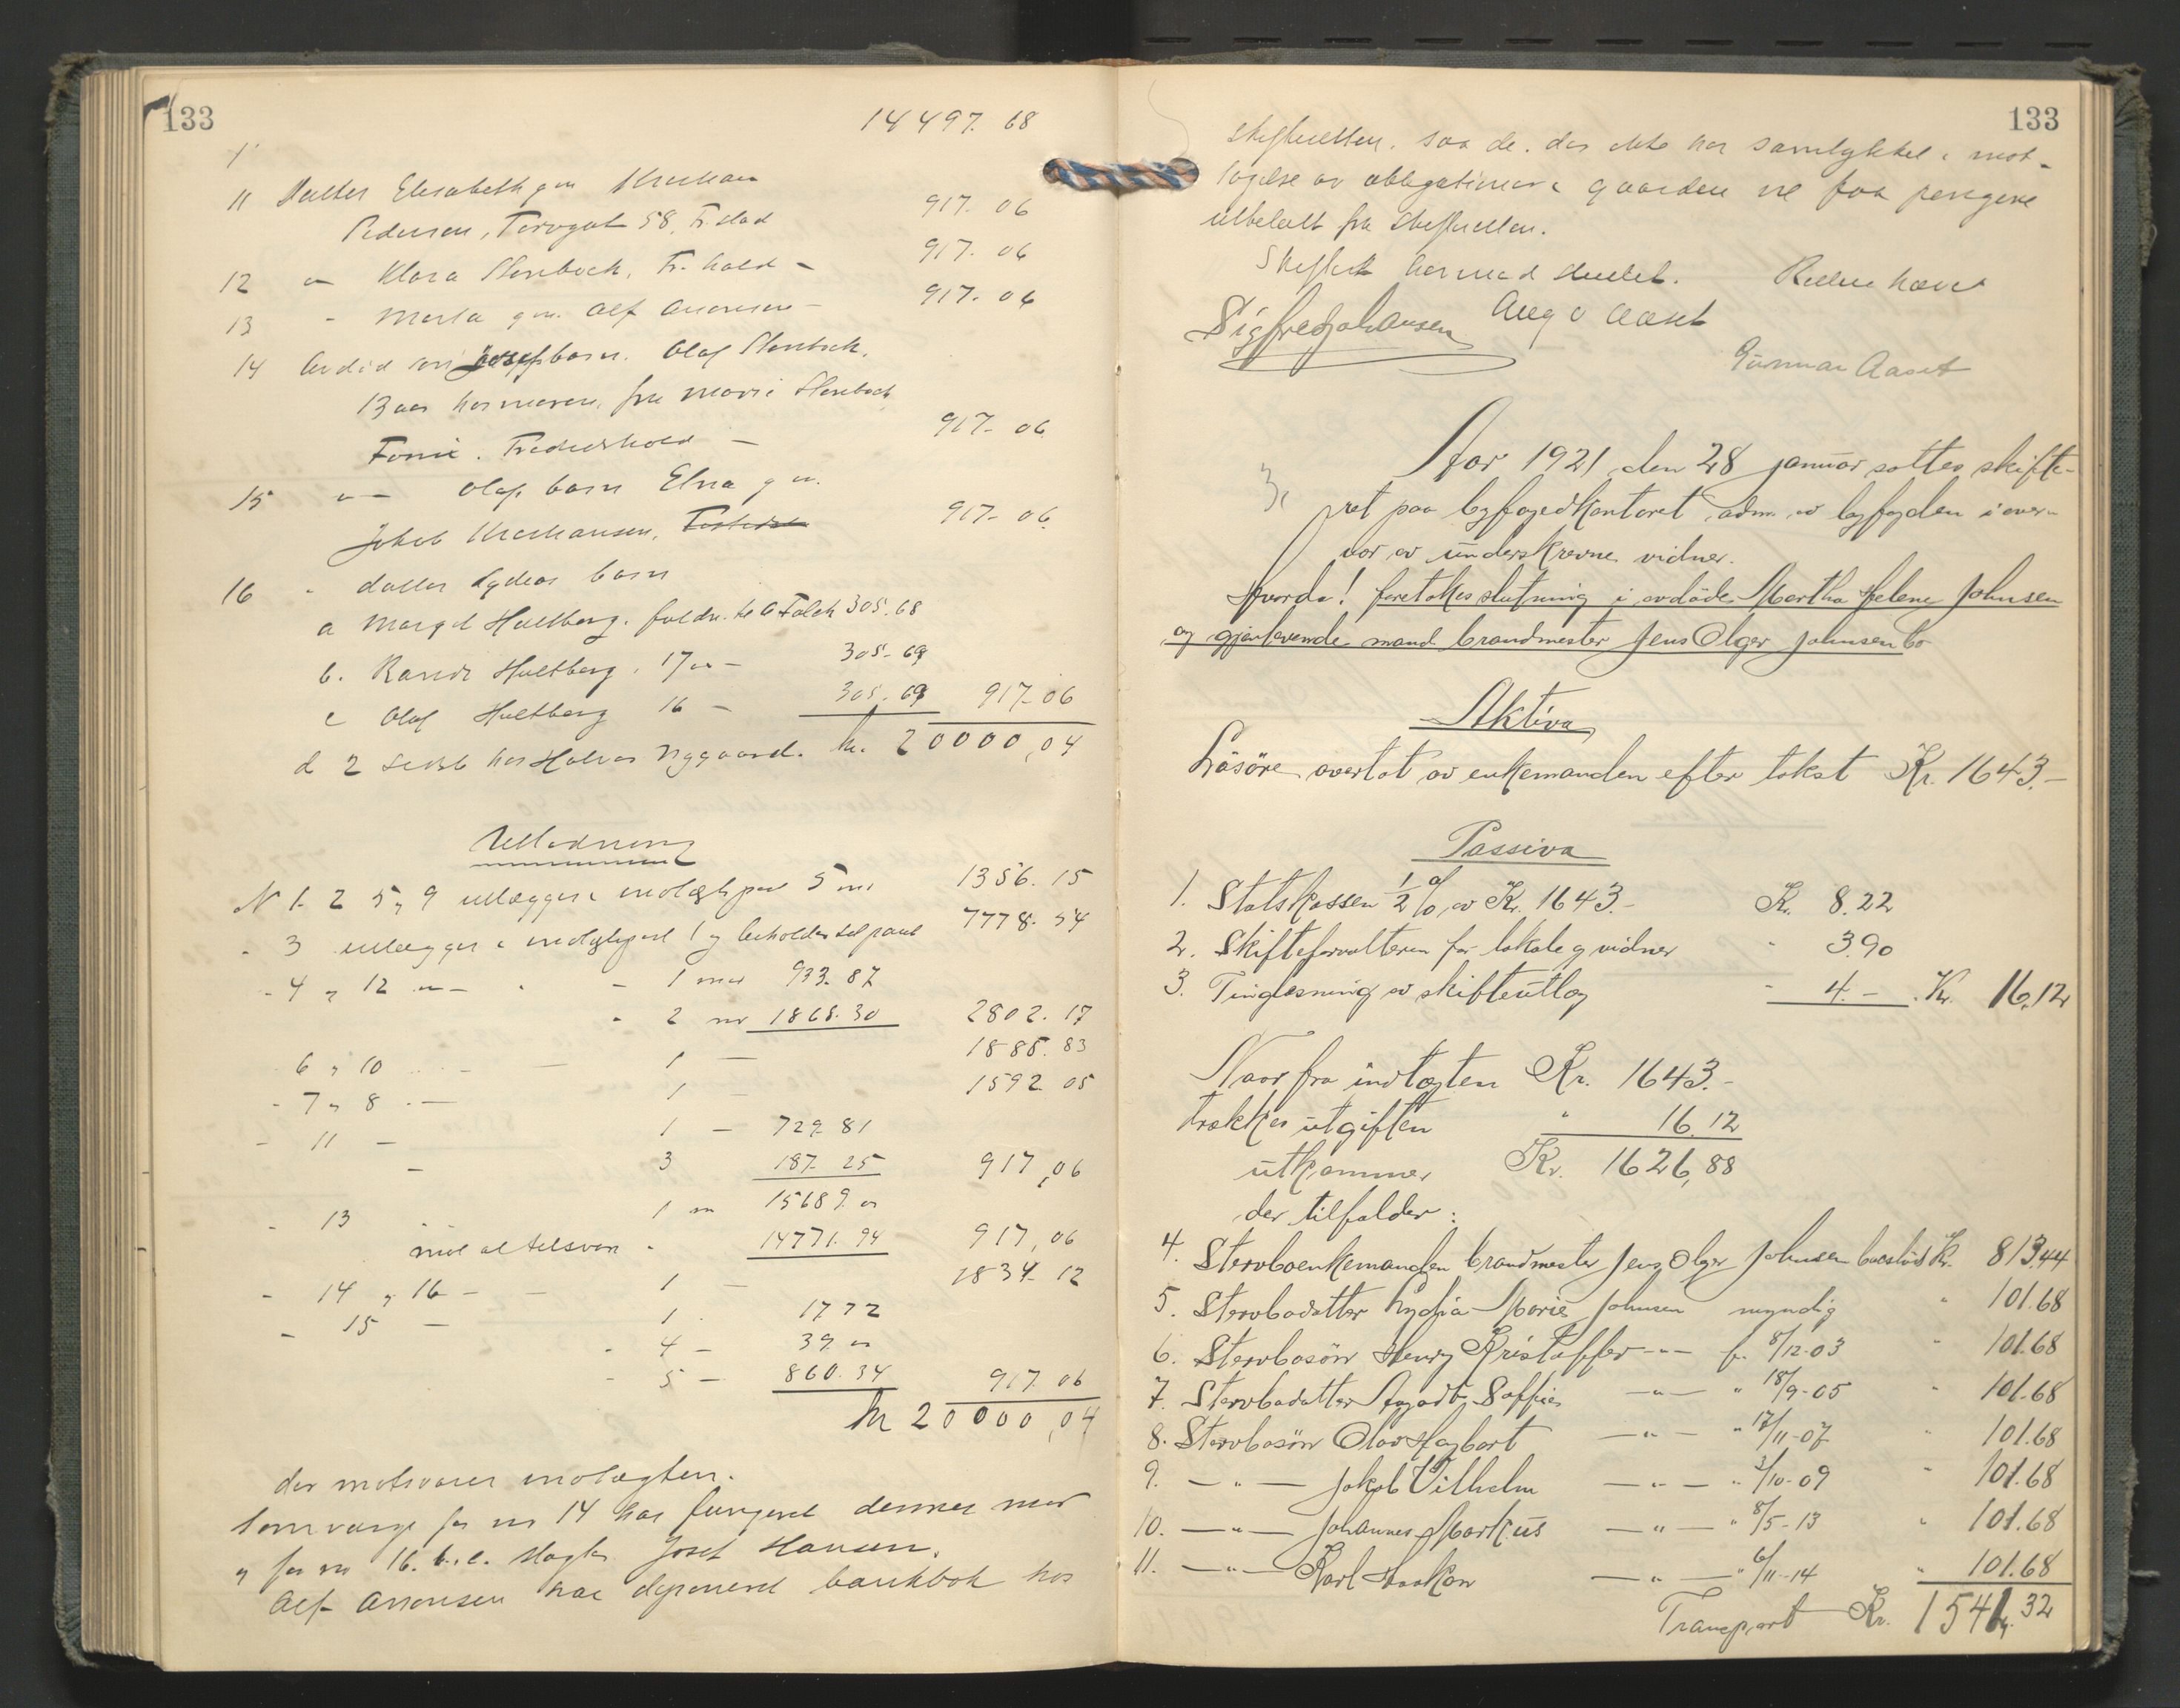 133
14497. 68
1
11 Datter Elisabeth gm
Pedersen, Torvgat 58, Fr.stad 917. 06
12 Klara Stenbock, Fr. hald - 917. 06
13 - Marta gm. Alf Aronsen - 917. 06
14 Avdød søn Josefs barn. Olaf Stenbock,
13 aar hos moren, fru Marie Stenbock
Fredrikshald - 917. 06
15 Olafs barn Elna gm.
Jakob 917- 06
16 - datter Lydias barn
a Margit Hultberg. 305. 68
b. Randi Hultberg, 17 305. 69
c Olaf Hultberg 16 - 305. 69 917-06
d 2 hos Halvor Nygaard. kr. 20000,04
Utlodning
N 1. 2 5 og 9 utlægges i indtægtspost 5 1356. 15
- 3 utlægges i indtægtspost 1 7778. 54
- 4 og 12 - 1 med 933. 87
- 2 1868. 30 2802. 17
6 og 10 1 - 1885. 83
- 7 og 8 - 1 - 1592 05
- 11 - 1 - 729. 81
- 3 187. 25 917,06
- 13 1 15689.
14771. 94 917,06
- 14 og 16 - 1 - 1834- 12
- 15 - 1 17 72
- 4 - 39
- 5 - 860. 34 917 06
kr 20000,04
der motsvarer indtægten.
Som verge for nr 14 har fungeret dennes mor
og for nr 16. b. c. Josef Hansen.
Alf Aronsen har deponeret bankbok hos
133
skifteretten, saa de, der ikke har samtykket i mot-
tagelse av obligationer i gaarden vil faa pengene
utbetalt fra skifteretten.
Skiftet hermed sluttet.
Sigfred Johansen Aug O Aaset
Gunnar Aaset
Aar 1921, den 28 januar sattes skifte-
ret paa byfogedkontoret, adm. av byfogden i over-
vær av underskrevne vidner.
Hvorda! foretokes slutning i avdöde Martha Helene Johnsen
og gjenlevende mand brandmester Jens Olger Johnsen bo
Aktiva
Lösöre overtat av enkemanden efter takst Kr. 1643.-
Passiva
1. Statskassen 1/2 % av Kr. 1643.- Kr. 8.22
2. Skifteforvalteren for lokale og vidner " 3.90
3. Tinglæsning av skifteutlæg " 4.- Kr. 16,12
Naar fra indtægten Kr. 1643.-
trækkes utgiften " 16.12
utkommer Kr. 1626,88
der tilfalder:
4. Stervboenkemanden brandmester Jens Olger Johnsen boeslod Kr. 813,44
5. Stervbodatter Lydia Marie Johnsen myndig " 101.68
6. Stervbosön Henry Kristoffer -"- f. 8/12-03 " 101.68
7. Stervbodatter Soffie -"- " 18/9-05 " 101.68
8. Stervbosön Olav Hagbart -"- " 17/11-07 " 101.68
9. -"- Jakob Vilhelm -"- " 3/10-09 " 101.68
10. -"- Johannes Markus -"- " 8/5-13 " 101.68
11. -"- Karl Haakon -"- " 6/11-14 " 101.68
Transport Kr. 1541,32